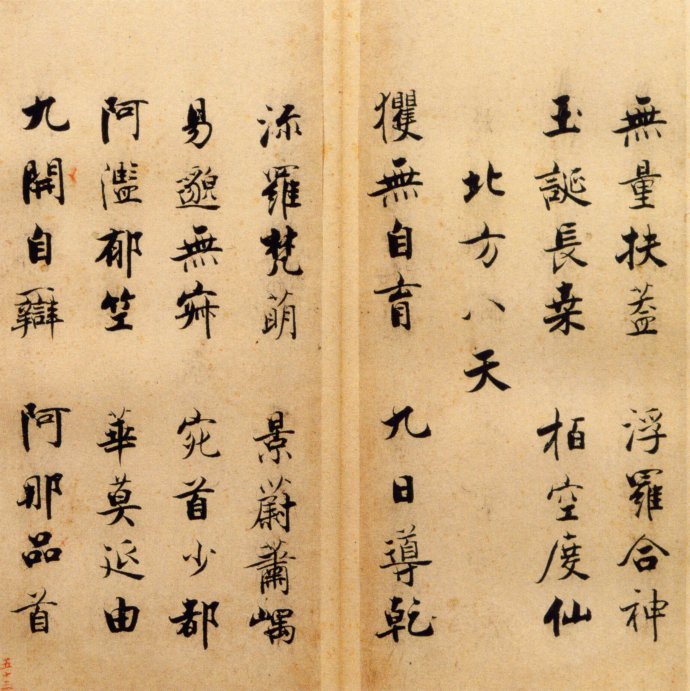 無量扶蓋 浮羅合神
玉誕長桒 栢空度仙
北方八天
玃無自育 九日導乾
流羅梵萌 景蔚蕭嵎
易邈無寂 宛首少都
阿濫郁竺 華莫延由
九開自辯 阿那品首
五十二